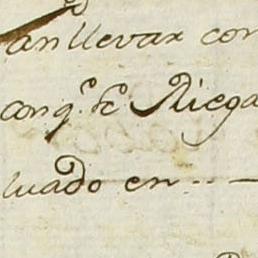 an llevar con
con q.e se Riega
luado en .. —